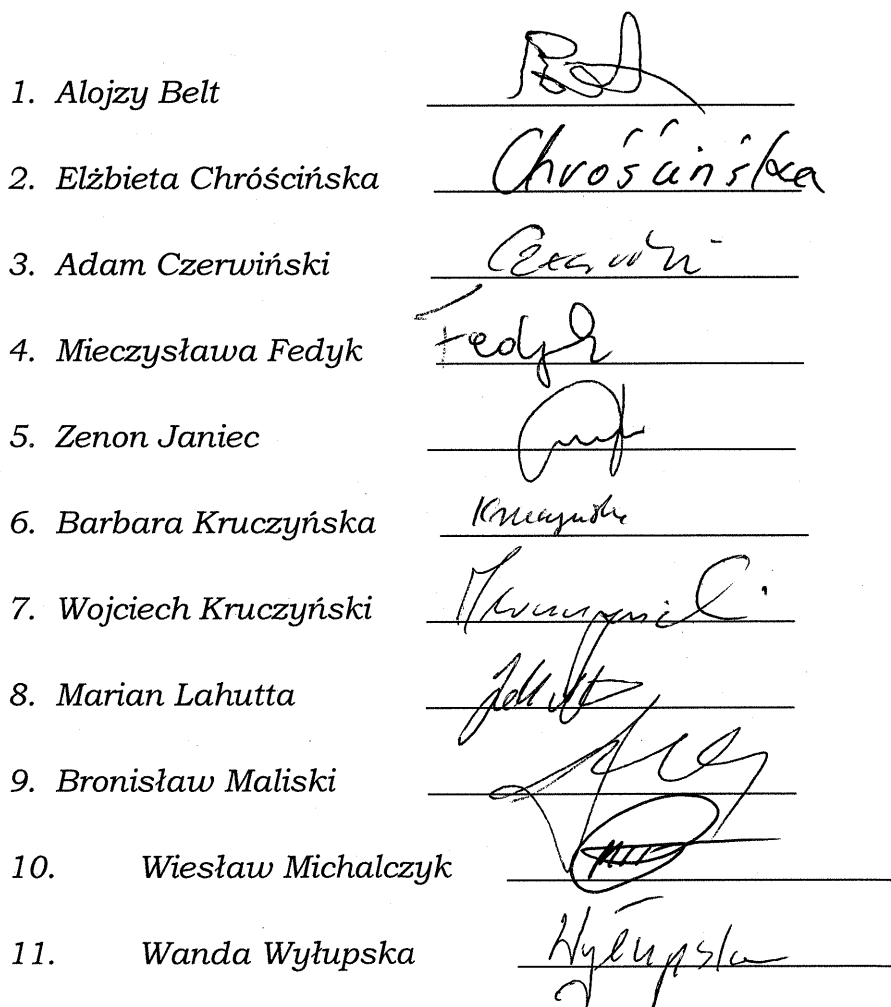 1. Alojzy Belt
2. Elżbieta Chróścińska Chróścińska
3. Adam Czerwiński
4. Mieczysława Fedyk Fedyk
5. Zenon Janiec
6. Barbara Kruczyńska Kruczyńska
7. Wojciech Kruczyński
8. Marian Lahutta
9. Bronisław Maliski
10. Wiesław Michalczyk
11. Wanda Wyłupska Wyłupska